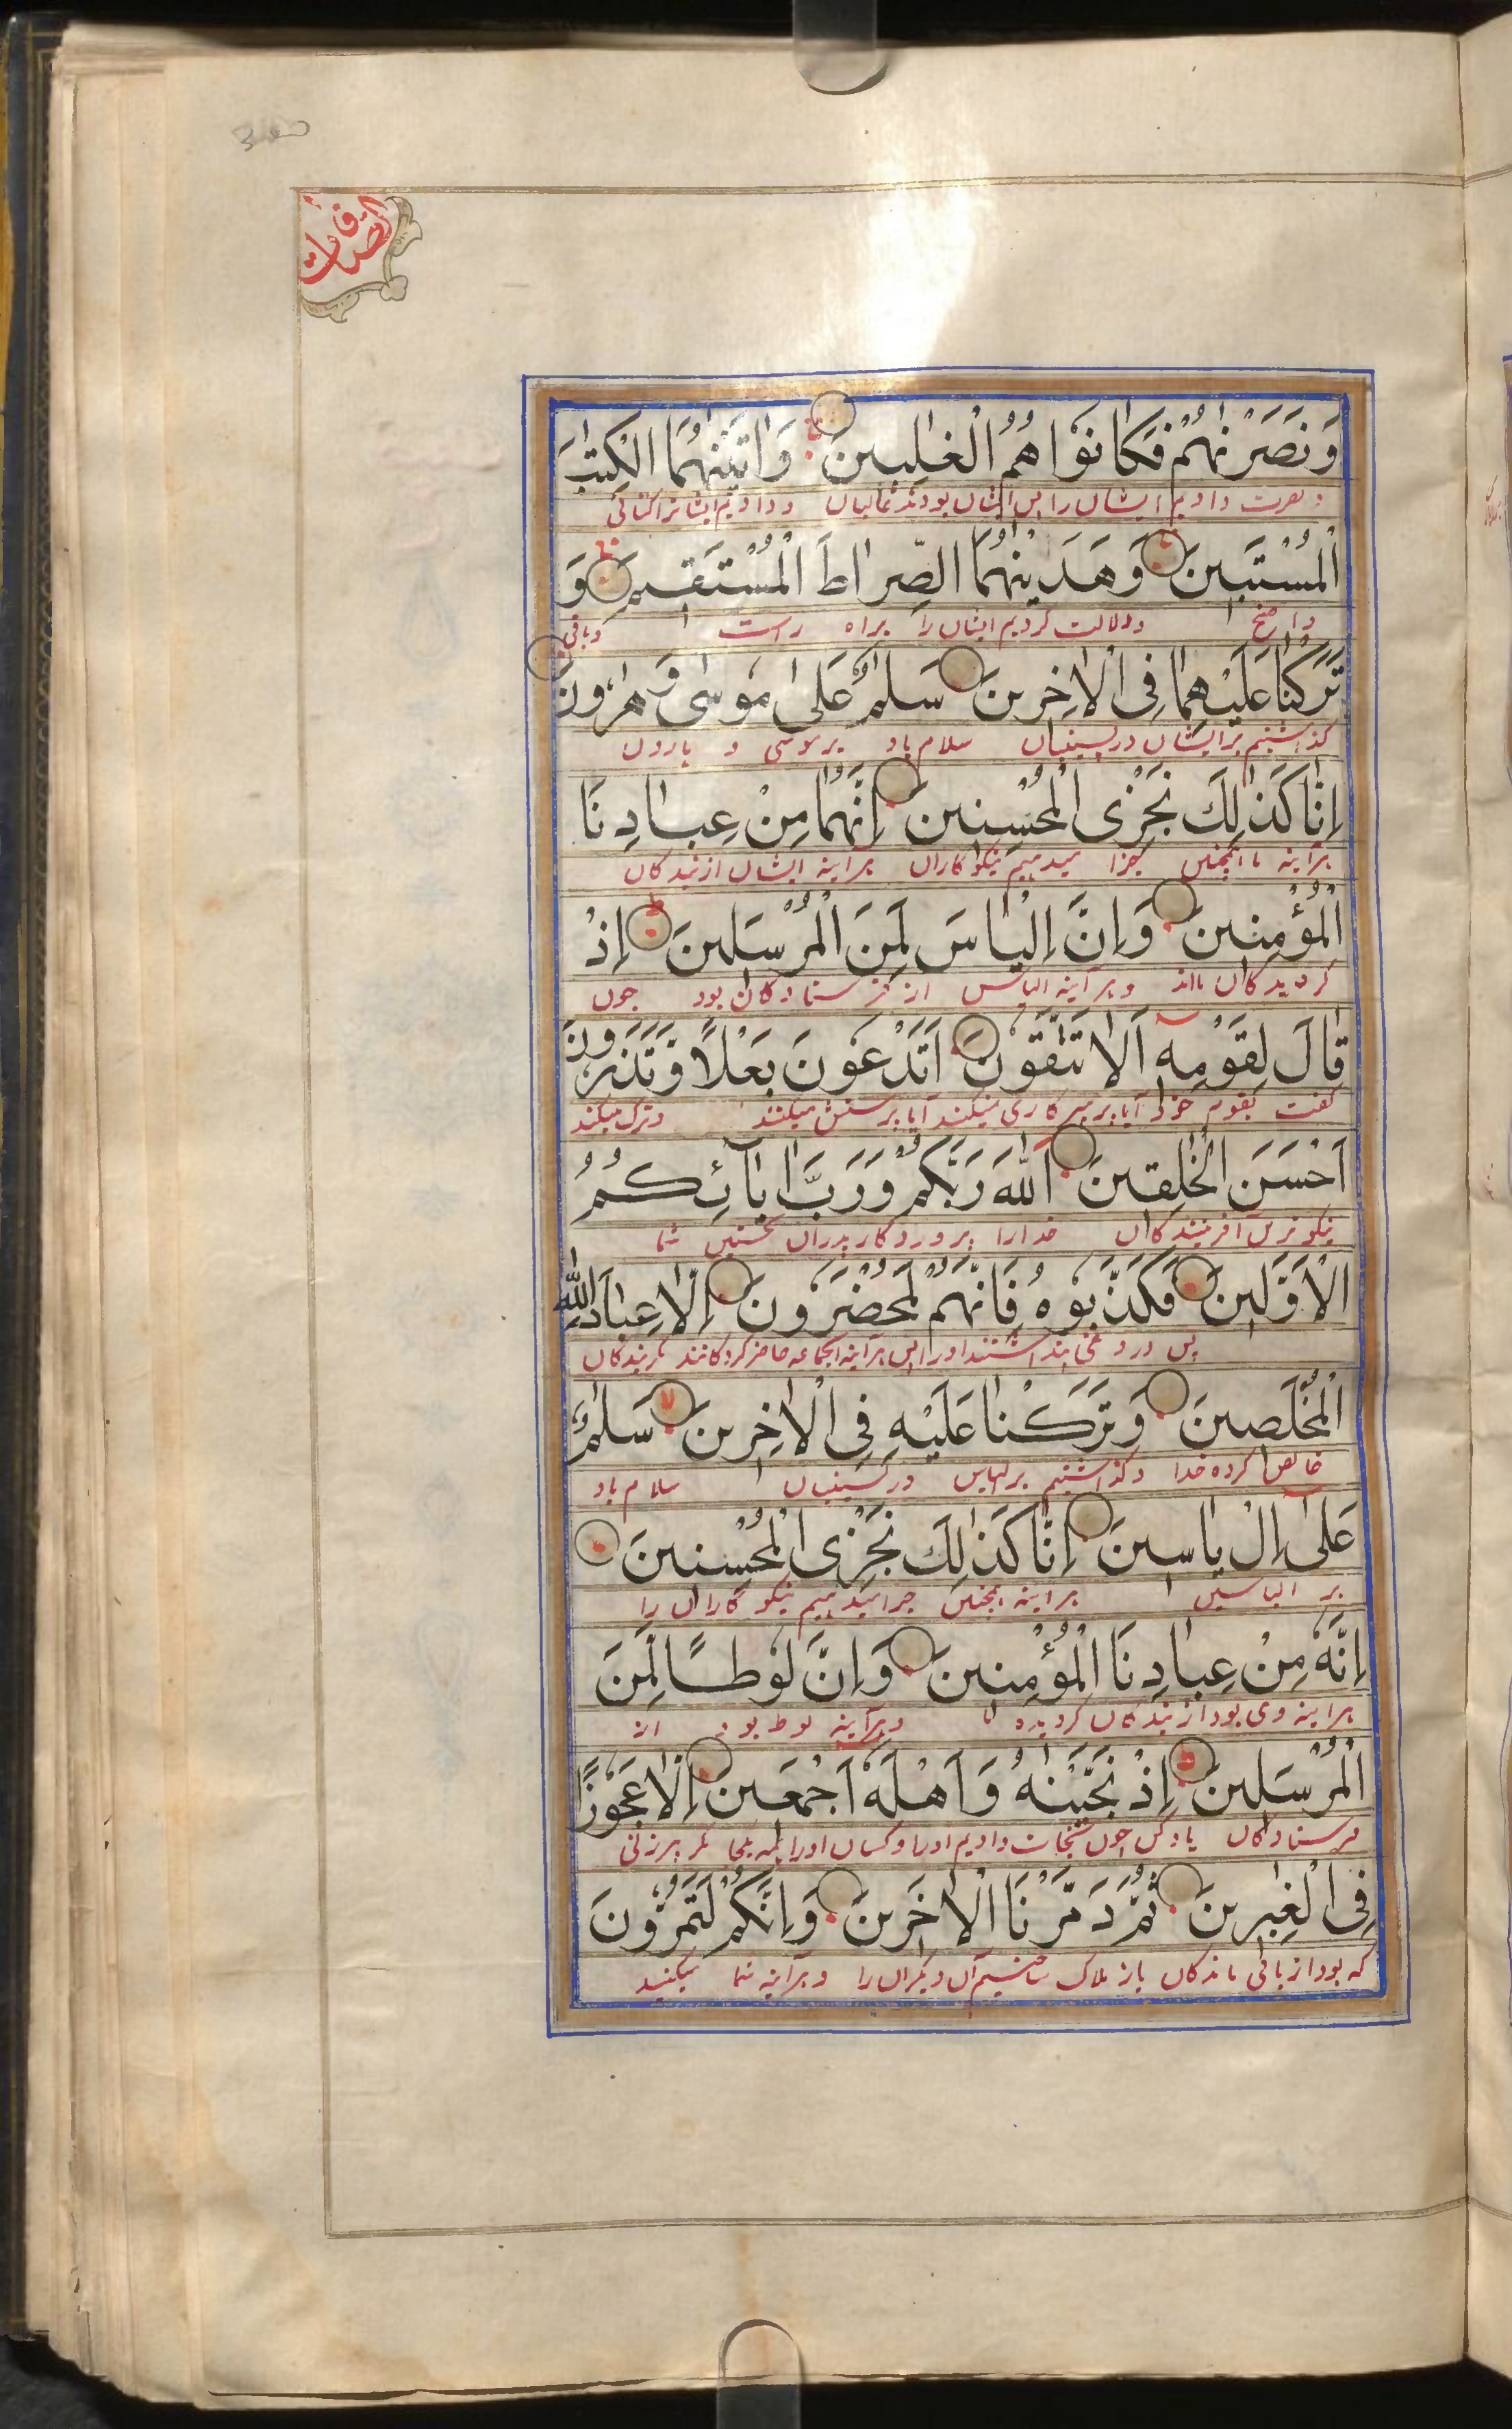 الصافات
وَنَصَرْنٰهُمْ فَكَانُوْا هُمُ الْغٰلِبِيْنَ وَاٰتَيْنٰهُمَا الْكِتٰبَ
و نصرت دادیم ایشان را پس ایشان بودند غالبان و دادیم ایشانرا کتابی
الْمُسْتَبِيْنَ وَهَدَيْنٰهُمَا الصِّرَاطَ الْمُسْتَقِيْمَ وَ
واضح و دلالت کردیم ایشان را براه راست و باقی
تَرَكْنَا عَلَيْهِمَا فِى الْاٰخِرِيْنَ سَلٰمٌ عَلٰى مُوْسٰى وَهٰرُوْنَ
گذاشتیم بر ایشان در پسینیان سلام باد بر موسی و هارون
اِنَّا كَذٰلِكَ نَجْزِى الْمُحْسِنِيْنَ اِنَّهُمَا مِنْ عِبَادِنَا
هرآینه ما همچنین جزا میدهیم نیکوکاران هرآینه ایشان از بندگان
الْمُؤْمِنِيْنَ وَاِنَّ اِلْيَاسَ لَمِنَ الْمُرْسَلِيْنَ اِذْ
گرویدگان مااند و هرآینه الیاس از فرستادگان بود چون
قَالَ لِقَوْمِهٖٓ اَلَا تَتَّقُوْنَ اَتَدْعُوْنَ بَعْلًا وَّتَذَرُوْنَ
گفت بقوم خود آیا پرهیزکاری نمیکنند آیا پرستش میکنند و ترک میکند
اَحْسَنَ الْخٰلِقِيْنَ اللّٰهَ رَبَّكُمْ وَرَبَّ اٰبَآئِكُمُ
نیکوترین آفرینندگان خدا را پروردگار پدران نخستین شما
الْاَوَّلِيْنَ فَكَذَّبُوْهُ فَاِنَّهُمْ لَمُحْضَرُوْنَ اِلَّا عِبَادَ اللّٰهِ
پس دروغی پنداشتند او را پس هرآینه آنجماعه حاضر کردگانند مگر بندگان
الْمُخْلَصِيْنَ وَتَرَكْنَا عَلَيْهِ فِى الْاٰخِرِيْنَ سَلٰمٌ
خالص کرده خدا و گذاشتیم بر الیاس در پسینیان سلام باد
عَلٰٓى اِلْ يَاسِيْنَ اِنَّا كَذٰلِكَ نَجْزِى الْمُحْسِنِيْنَ
بر الیاسین هرآینه همچنین جزا میدهیم نیکوکاران را
اِنَّهٗ مِنْ عِبَادِنَا الْمُؤْمِنِيْنَ وَاِنَّ لُوْطًا لَّمِنَ
هرآینه وی بود از بندگان گرویده و هرآینه لوط بود از
الْمُرْسَلِيْنَ اِذْ نَجَّيْنٰهُ وَاَهْلَهٗٓ اَجْمَعِيْنَ اِلَّا عَجُوْزًا
فرستادگان یاد کن چون نجات دادیم او را و کسان او را همه یکجا مگر پیرزنی
فِى الْغٰبِرِيْنَ ثُمَّ دَمَّرْنَا الْاٰخَرِيْنَ وَاِنَّكُمْ لَتَمُرُّوْنَ
که بود از باقی ماندگان باز هلاک ساختیم آن دیگران را و هرآینه شما میکنید